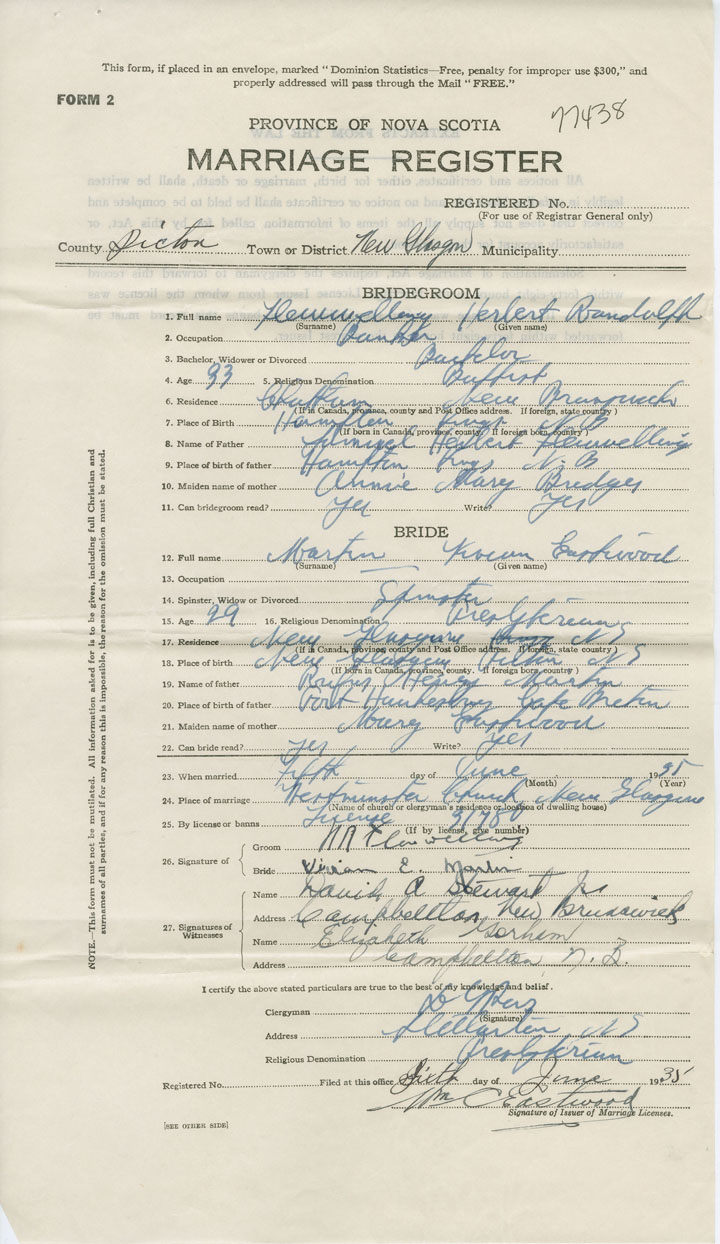 This form, if placed in an envelope, marked "Dominion Statistics—Free, penalty for improper use $300," and
properly addressed will pass through the Mail "FREE."
FORM 2
77438
PROVINCE OF NOVA SCOTIA
MARRIAGE REGISTER
REGISTERED No.
(For use of Registrar General only)
County Pictou Town or District New Glasgow Municipality
BRIDEGROOM
1. Full name Flewwelling Herbert Randolph
(Surname) (Given name)
2. Occupation Banker
3. Bachelor, Widower or Divorced Bachelor
4. Age 33 5. Religious Denomination Baptist
6. Residence Chatham New Brunswick
(If in Canada, province, county and Post Office address. If foreign, state country)
7. Place of Birth Hampton Kings N.B.
(If born in Canada, province, county. If foreign born, country)
8. Name of Father Herbert Flewwelling
9. Place of birth of father Hampton Kings N.B
10. Maiden name of mother Annie Mary Bridges
11. Can bridegroom read? Yes Write? Yes
BRIDE
12. Full name Martin Vivian Eastwood
(Surname) (Given name)
13. Occupation —
14. Spinster, Widow or Divorced Spinster
15. Age 29 16. Religious Denomination Presbyterian
17. Residence New Glasgow N S
(If in Canada, province, county and Post Office address. If foreign, state country)
18. Place of birth New Glasgow Pictou N S
(If born in Canada, province, county. If foreign born, country)
19. Name of father Rufus Henry Martin
20. Place of birth of father Port Hawkesbury Cape Breton
21. Maiden name of mother Mary Eastwood
22. Can bride read? Yes Write? Yes
23. When married Fifth day of June 1935
(Month) (Year)
24. Place of marriage Westminster Church New Glasgow
(Name of church or clergyman's residence or location of dwelling house)
25. By license or banns License 31780
(If by license, give number)
26. Signature of
Groom H R Flewwelling
Bride Vivian E. Martin
27. Signatures of Witnesses
Name David A Stewart Jr
Address Campbellton, New Brunswick
Name Elizabeth Gorham
Address Campbellton N.B.
I certify the above stated particulars are true to the best of my knowledge and belief.
Clergyman
(Signature)
Address Stellarton N S
Religious Denomination Presbyterian
Registered No. Filed at this office Sixth day of June 1935
Wm C Eastwood
Signature of Issuer of Marriage Licenses.
[SEE OTHER SIDE]
NOTE.—This form must not be mutilated. All information asked for is to be given, including full Christian and
surnames of all parties, and if for any reason this is impossible, the reason for the omission must be stated.